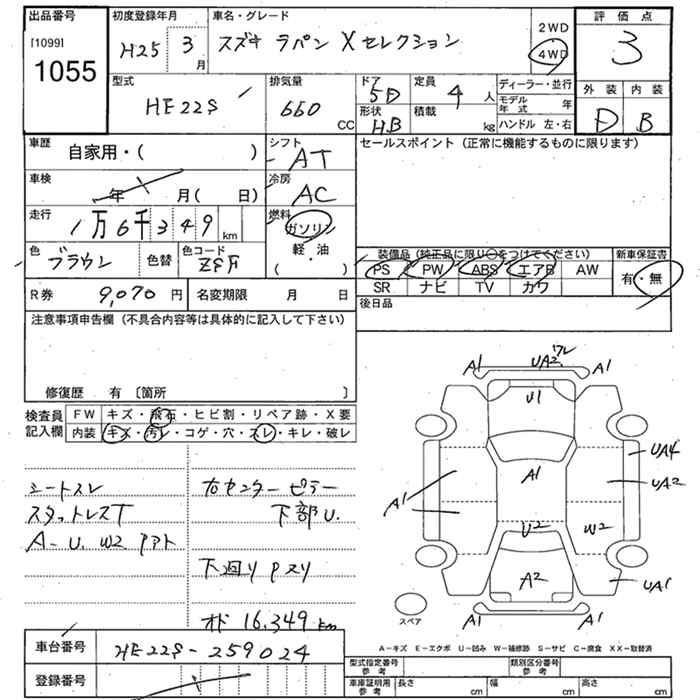 出品番号
[1099]
1055
初度登録年月
H25 3月
車名・グレード
スズキ ラパン X セレクション
2WD
4WD
評価点
3
型式
HE22S
排気量
660 CC
ドア
5D
形状
HB
定員
4人
積載
kg
ディーラー・並行
モデル年式 年
ハンドル 左・右
外装 内装
D B
車歴
自家用・( )
シフト
AT
セールスポイント (正常に機能するものに限ります)
車検
年 月 ( 日)
冷房
AC
走行
1万6千349km
燃料
ガソリン
軽・油
( )
色
ブラウン
色替
色コード
ZSF
装備品 (純正品に限り○をつけてください)
PS PW ABS エアB AW
SR ナビ TV カワ
新車保証書
有・無
R券 9,070円
名変期限 月 日
後日品
注意事項申告欄 (不具合内容等は具体的に記入して下さい)
修復歴 有 〔箇所 〕
検査員記入欄
FW キズ・飛石・ヒビ割・リペア跡・X要
内装 キズ・汚レ・コゲ・穴・スレ・キレ・破レ
シートスレ
スタットレスT
A-U. W2 Pアト
右センターピラー
下部U.
下廻りPスリ
オド 16,349 km
A1
UA2 ワレ
A1
U1
A1
UA4
A1
UA2
U2
W2
A2
UA1
A1
A1
スペア
A-キズ E-エクボ U-凹み W-補修跡 S-サビ C-腐食 XX-取替済
車台番号
HE22S-259024
登録番号
型式指定番号参考
類別区分番号参考
車庫証明用参考
長さ cm 幅 cm 高さ cm